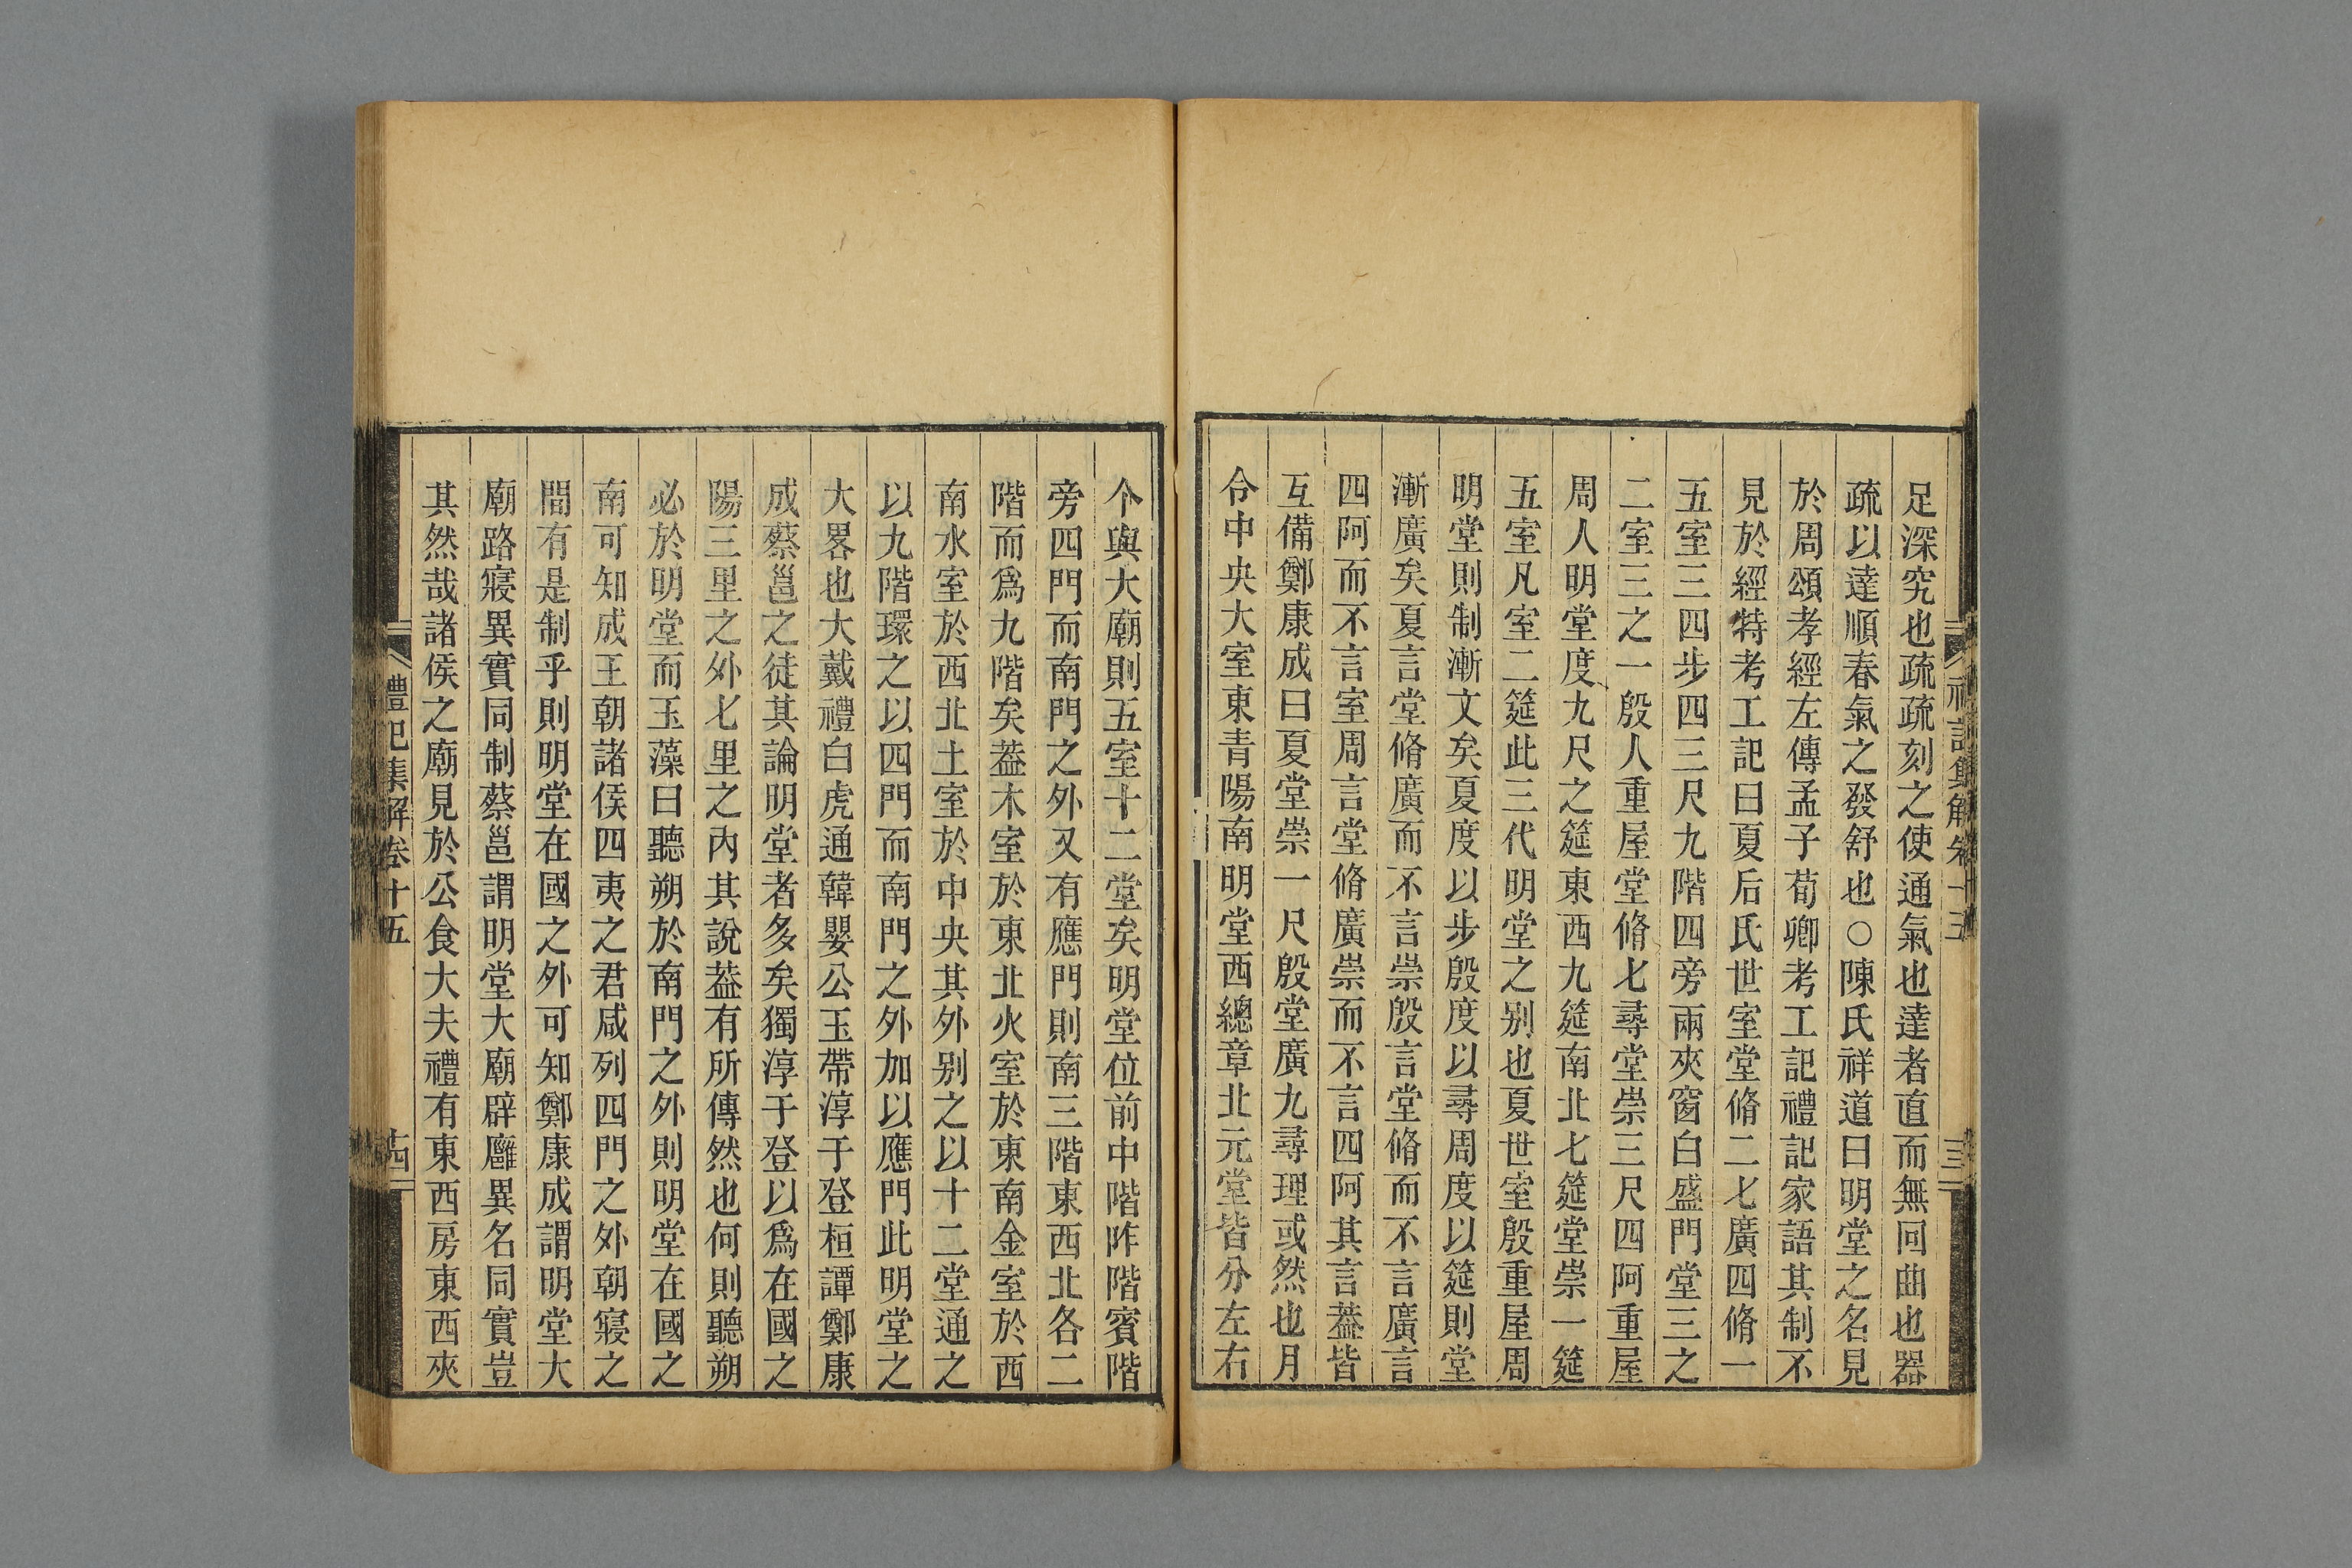 足深究也疏疏刻之使通氣也達者直而無回曲也器
疏以達順春氣之發舒也○陳氏祥道曰明堂之名見
於周頌孝經左傳孟子荀卿考工記禮記家語其制不
見於經特考工記曰夏后氏世室堂脩二七廣四脩一
五室三四步四三尺九階四旁兩夾窗白盛門堂三之
二室三之一殷人重屋堂脩七尋堂崇三尺四阿重屋
周人明堂度九尺之筵東西九筵南北七筵堂崇一筵
五室凡室二筵此三代明堂之别也夏世室殷重屋周
明堂則制漸文矣夏度以步殷度以尋周度以筵則堂
漸廣矣夏言堂脩廣而不言崇殷言堂脩而不言廣言
四阿而不言室周言堂脩廣崇而不言四阿其言葢皆
互備鄭康成曰夏堂崇一尺殷堂廣九尋理或然也月
令中央大室東青陽南明堂西總章北元堂皆分左右
个與大廟則五室十二堂矣明堂位前中階阼階賓階
旁四門而南門之外又有應門則南三階東西北各二
階而爲九階矣葢木室於東北火室於東南金室於西
南水室於西北土室於中央其外别之以十二堂通之
以九階環之以四門而南門之外加以應門此明堂之
大畧也大戴禮白虎通韓嬰公玉帶淳于登桓譚鄭康
成蔡邕之徒其論明堂者多矣獨淳于登以爲在國之
陽三里之外七里之內其說葢有所傳然也何則聽朔
必於明堂而玉藻曰聽朔於南門之外則明堂在國之
南可知成王朝諸侯四夷之君咸列四門之外朝寢之
間有是制乎則明堂在國之外可知鄭康成謂明堂大
廟路寢異實同制蔡邕謂明堂大廟辟廱異名同實豈
其然哉諸侯之廟見於公食大夫禮有東西房東西夾
禮記集解卷十五
十四